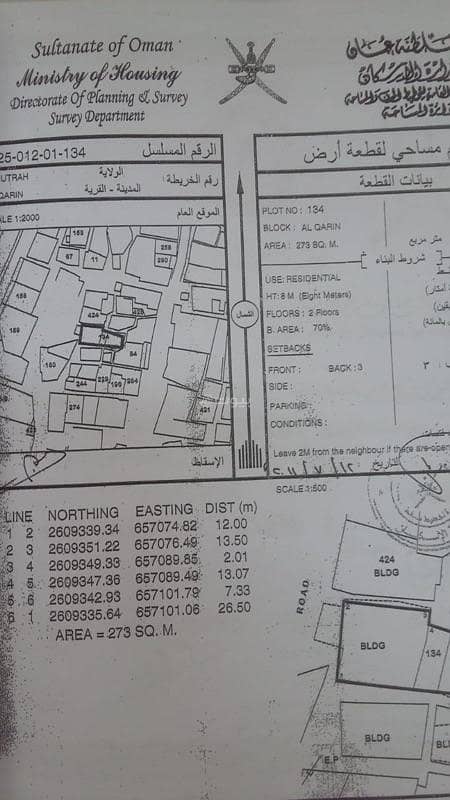 Sultanate of Oman
Ministry of Housing
Directorate Of Planning & Survey
Survey Department
سلطنة عمان
25-012-01-134
الرقم المسلسل
UTRAH
الولاية
QARIN
المدينة - القرية
رقم الخريطة :
LE 1:2000
الموقع العام
مساحي لقطعة أرض
بيانات القطعة
PLOT NO : 134
BLOCK : AL QARIN
AREA : 273 SQ. M.
متر مربع
شروط البناء
USE: RESIDENTIAL
HT: 8 M (Eight Meters)
FLOORS : 2 Floors
B. AREA : 70%
SETBACKS
FRONT :
BACK : 3
٣
SIDE :
PARKING
CONDITIONS :
Leave 2M from the neighbour if there are open
التاريخ
SCALE 1:500
159
67
11
258
290
189
424
425
134
169
160
84
244
229
199
264
274
421
الشمال
الإسقاط
LINE NORTHING EASTING DIST (m)
1 2 2609339.34 657074.82 12.00
2 3 2609351.22 657076.49 13.50
3 4 2609349.33 657089.85 2.01
4 5 2609347.36 657089.49 13.07
5 6 2609342.93 657101.79 7.33
6 1 2609335.64 657101.06 26.50
AREA = 273 SQ. M.
424
BLDG
ROAD
BLDG
134
BLDG
E.P